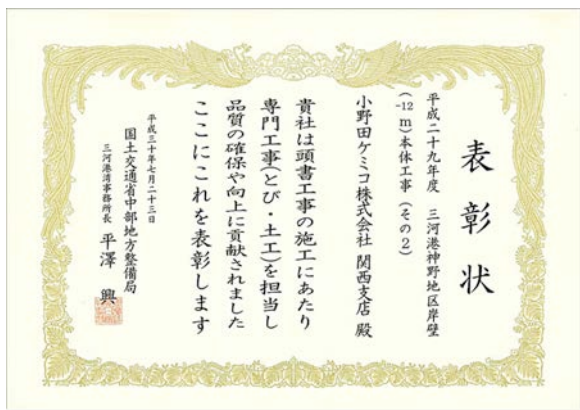 表彰状
平成二十九年度 三河港神野地区岸壁
(-12m)本体工事(その2)
小野田ケミコ株式会社 関西支店 殿
貴社は頭書工事の施工にあたり
専門工事(とび・土工)を担当し
品質の確保や向上に貢献されました
ここにこれを表彰します
平成三十年七月二十三日
国土交通省中部地方整備局
三河港湾事務所長 平澤 興